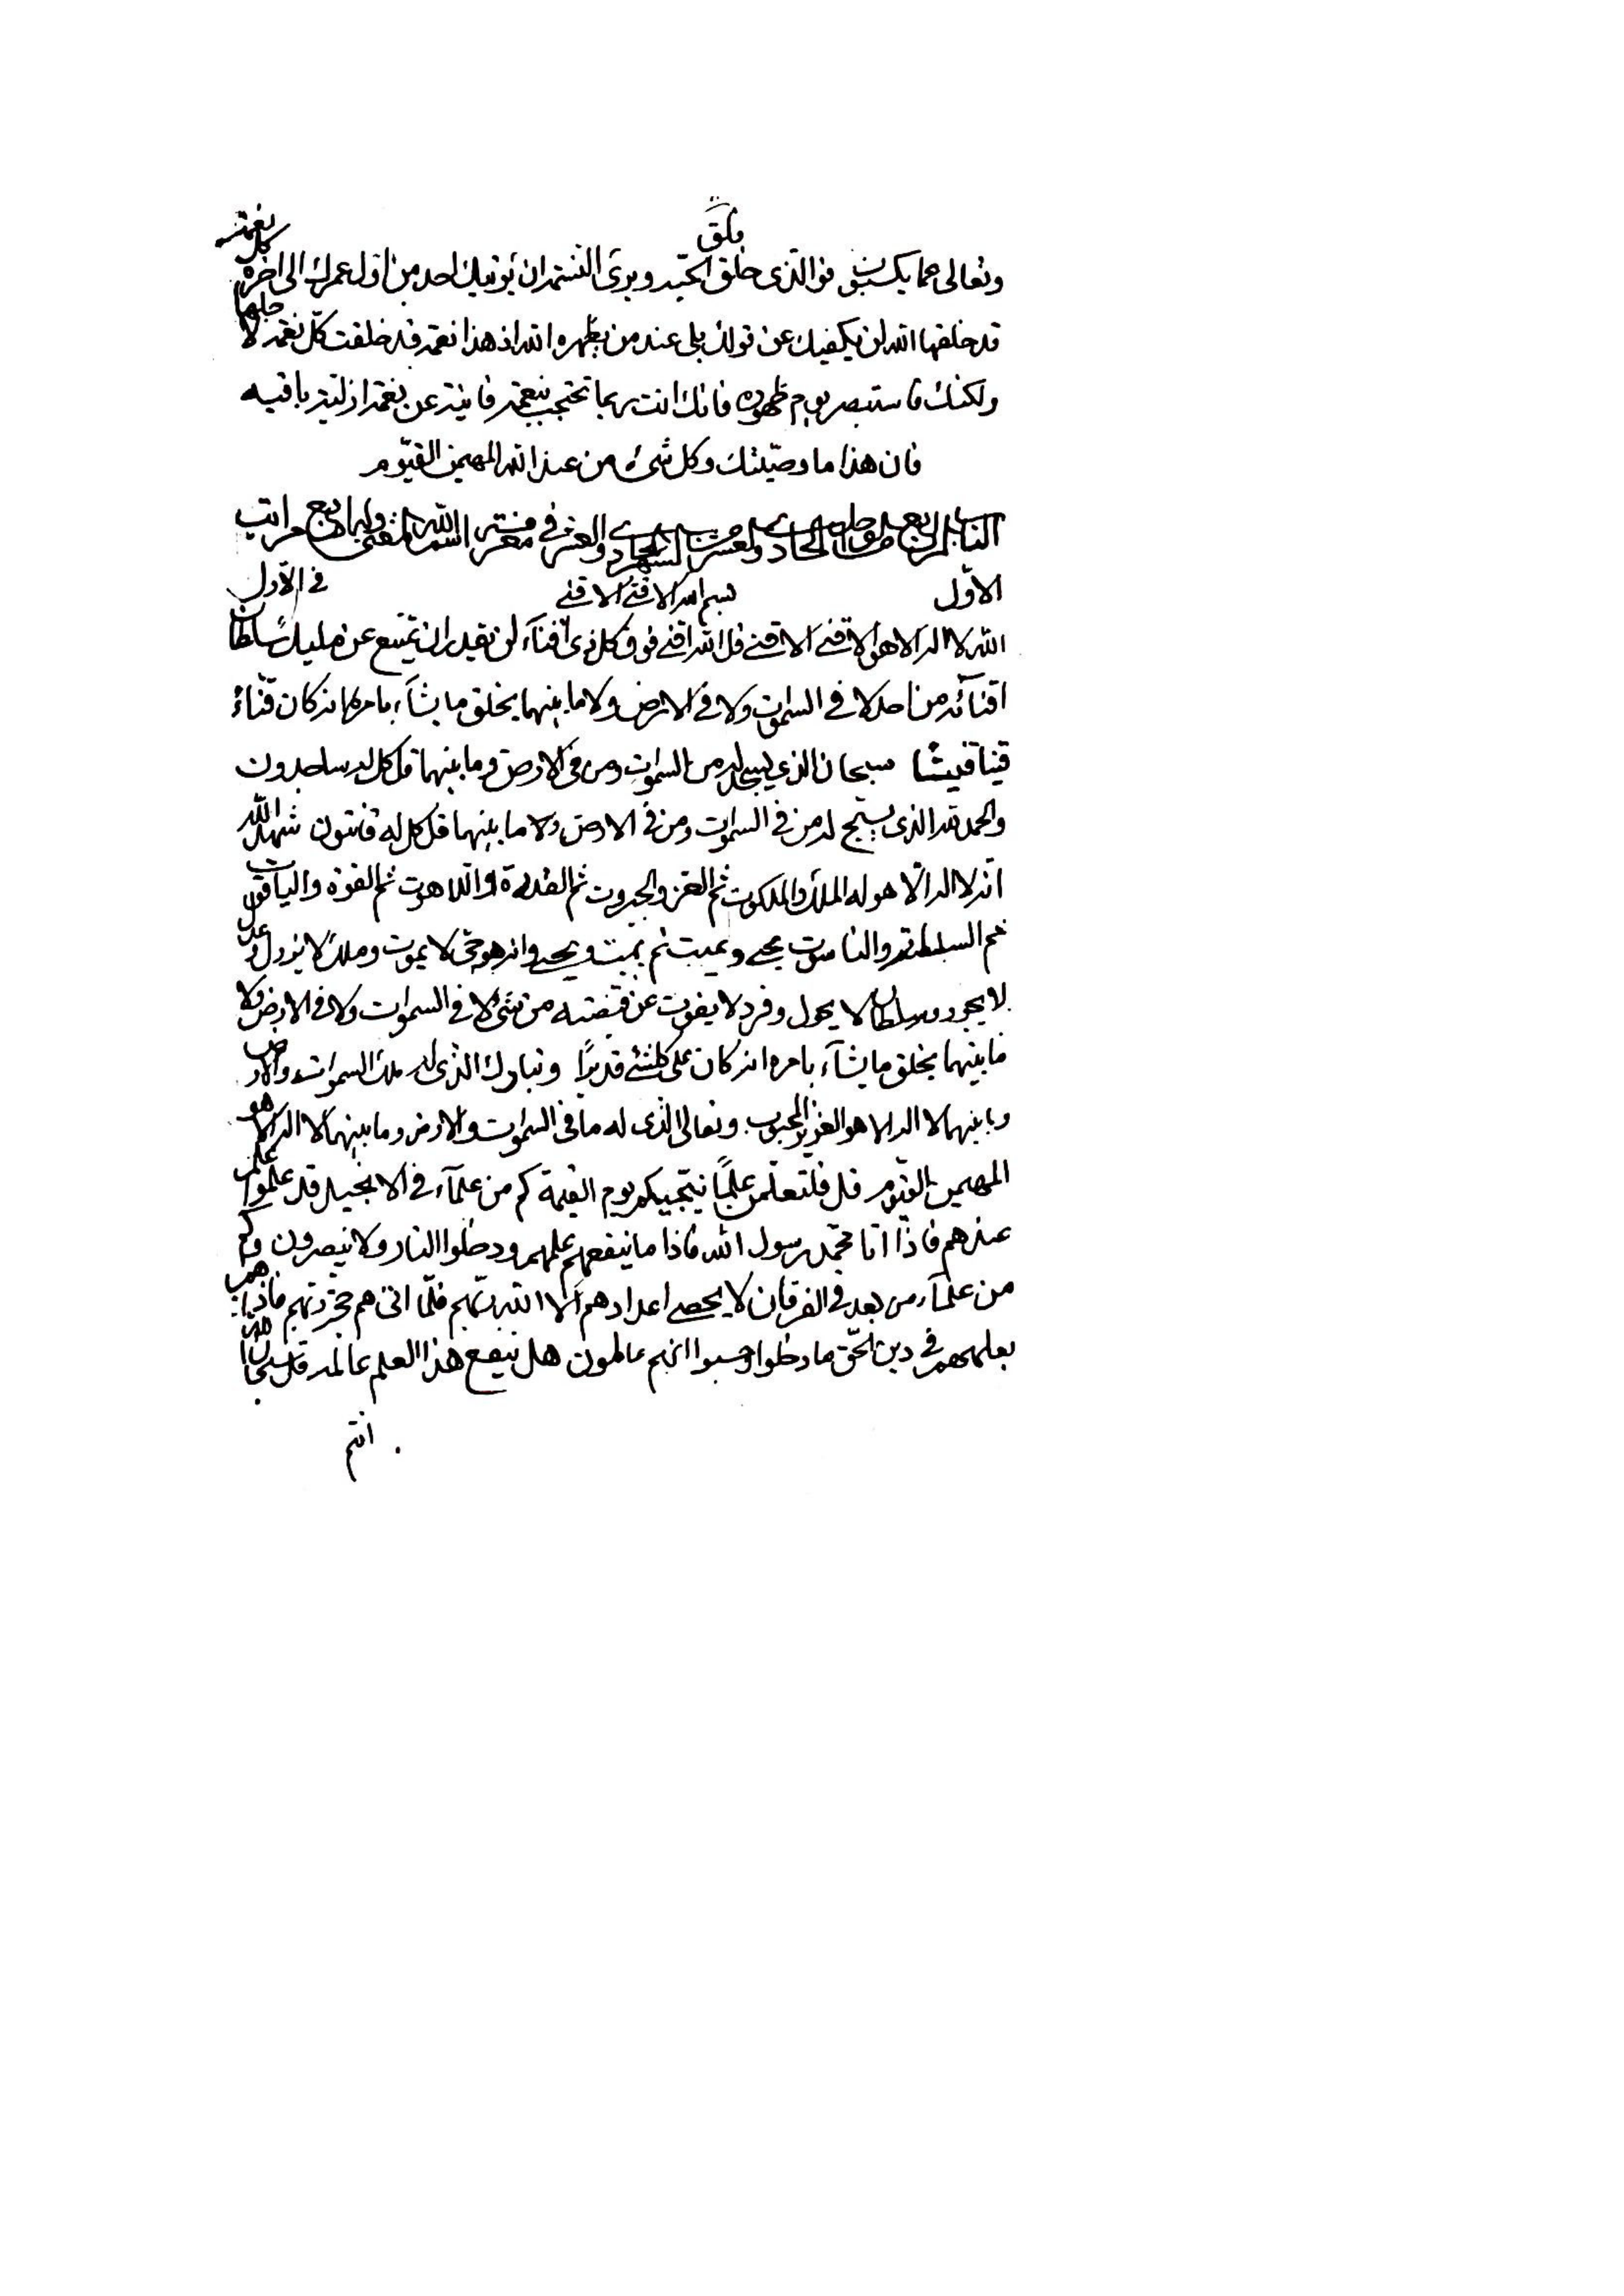 فلق
وتعالى عما يكسبون فوالذى خلق الحبة وبرئ النسمة ان يؤتيك احد من اول عمرك الى اخره كل نعمة
قد خلقها الله لن يكفيك عن قولك بلى عند من يظهره الله اذ هذا نعمة قد خلقت كل نعمة لا جلها
ولكنك فاستبصر يوم ظهوره فانك انت ربما تحتجب بنعمة فانية عن نعمة ازلية باقيه
فان هذا ما وصيتك وكل شئ من عند الله المهيمن القيوم
الباب الرابع من الواحد الحادى والعشر من الشهر الحادى والعشر فى معرفة اسم الله وله اربع مراتب
الاول بسم الله الاقنى الاقنى فى الاول
الله لا اله الا هو الاقنى الاقنى قل الله اقنى فوق كل ذى اقناء لن يقدر ان يمتنع عن مليك سلطان
اقنائه من احد لا فى السموات ولا فى الارض ولا ما بينهما يخلق ما يشاء بامره انه كان قناء
قنيا قنيئا سبحان الذى يسجد له من فى السموات ومن فى الارض وما بينهما قل كل له ساجدون
والحمد لله الذى يسبح له من فى السموات ومن فى الارض ولا ما بينهما قل كل له قانتون شهد الله
انه لا اله الا هو له الملك والملكوت ثم العز والجبروت ثم القدرة واللاهوت ثم القوة والياقوت
ثم السلطنة والناسوت يحيى ويميت ثم يميت ويحيى وانه هو حى لا يموت وملك لا يزول وعدل
لا يجور وسلطان لا يحول وفرد لا يفوت عن قبضته من شئ لا فى السموات ولا فى الارض ولا
ما بينهما يخلق ما يشاء بامره انه كان على كلشئ قديرا وتبارك الذى له ملك السموات والارض
وما بينهما لا اله الا هو العزيز المحبوب وتعالى الذى له ما فى السموات والارض وما بينهما لا اله الا هو
المهيمن القيوم قل فلتعلمن علما ينجيكم يوم القيمة كم من علماء فى الانجيل قد علموا علم
عندهم فاذا اتا محمد رسول الله فاذا ما ينفعهم علمهم ودخلوا النار ولا ينصرون وكم
من علماء من بعد فى الفرقان لا يحصى اعدادهم الا الله ربهم فلما اتى هم حجة ربهم فاذا هم
بعلمهم فى دين الحق ما دخلوا وحسبوا انهم عالمون هل ينفع هذا العلم عالمه قل سبحان الله
انتم